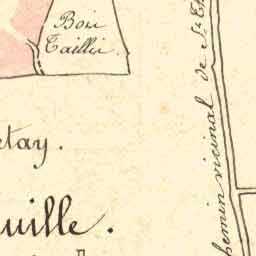 Bois
Taillis.
etay.
uille.
chemin vicinal de St